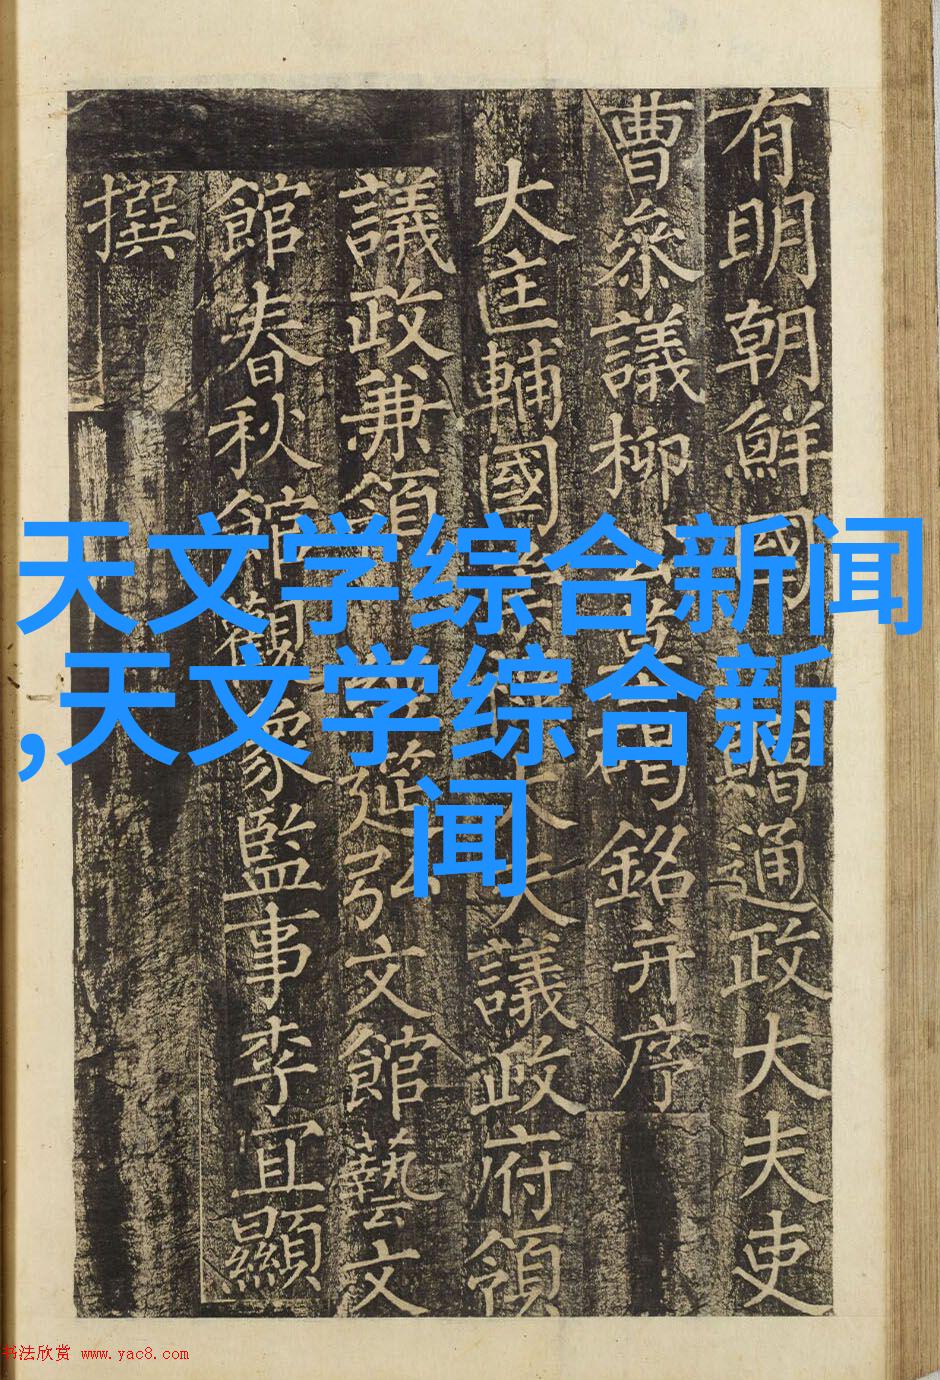 有明朝鮮國贈通政大夫吏
曹參議柳公墓碣銘并序
大匡輔國崇大夫議政府領
議政兼領經筵弘文館藝文
館春秋館觀象監事李宜顯
撰
天文学综合新闻
,天文学综合新
闻
书法欣赏 www.yac8.com